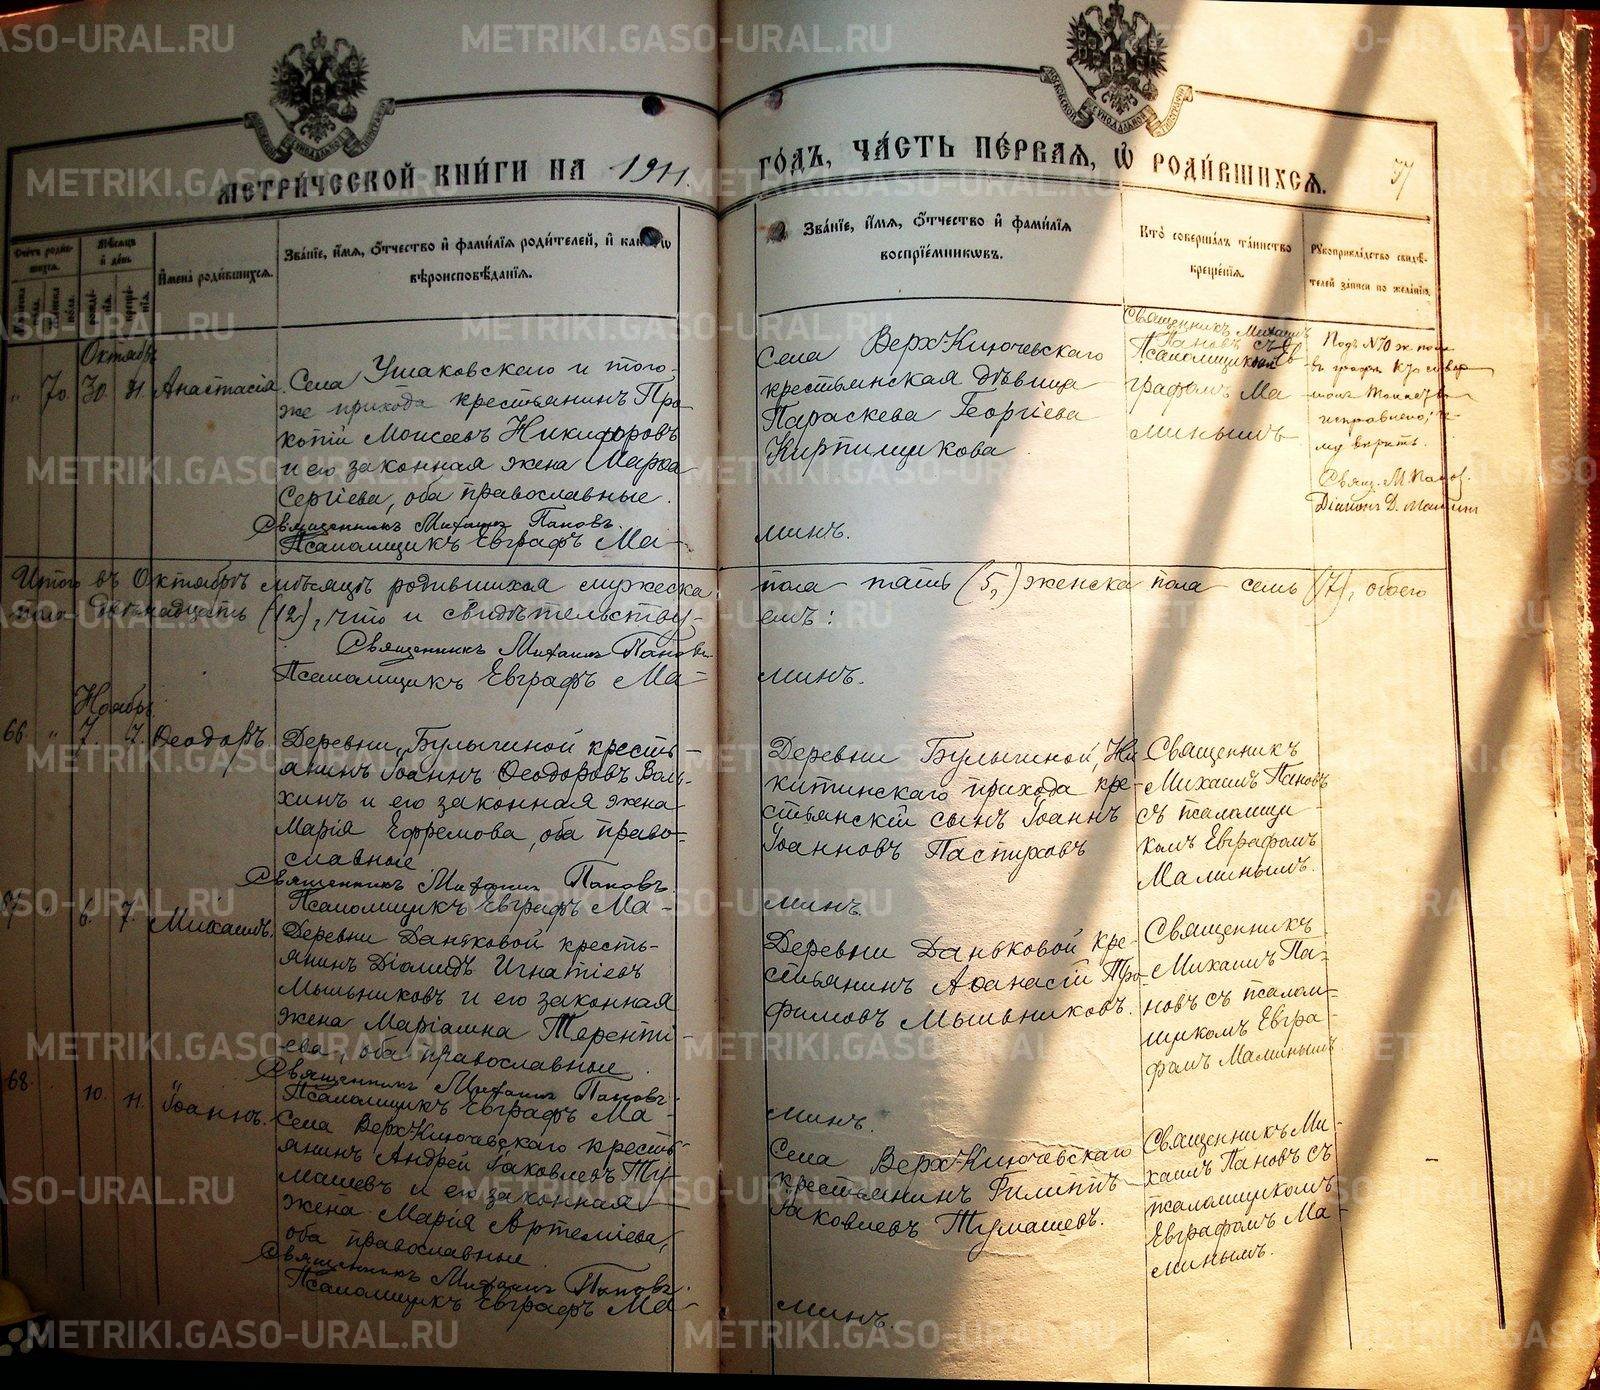 METRIKI.GASO-URAL.RU
МЕТРИ́ЧЕСКОЙ КНИ́ГИ НА 1911.
ГО́ДЪ, ЧА́СТЬ ПЕ́РВАѦ, Ѡ҆ РОДИ́ВШИХСѦ.
Мѣсяцъ и день
Имена родившихся.
Зва́нїе, и҆́мѧ, Ѻ҆́тчество и҆ фами́лїѧ роди́телей, и҆
вѣроисповѣ́данїѧ.
Зва́нїе, и҆́мѧ, Ѻ҆́тчество и҆ фами́лїѧ
воспрїе́мникѡвъ.
Кто̀ соверша́лъ та́инство
креще́нїѧ.
Рꙋкоприкла́дство свидѣ́-
телей за́писи по жела́нїю
Октябрь
70. 30. 31. Анастасія
Села Ушаковскаго и того-
же прихода крестьянинъ Про
копій Моисеевъ Никифоровъ
и его законная жена Марфа
Сергіева, оба православные.
Священникъ Михаилъ Пановъ.
Псаломщикъ Евграфъ Ма-
Села Верх-Ключевскаго
крестьянская дѣвица
Параскева Георгіева
Кирпищикова
минъ.
Священникъ Михаилъ
Пановъ съ
Псаломщикомъ Ев
графомъ Ма
минымъ
Подъ №70 ж пола
въ графѣ
исправлено;
вѣрить.
Свящ. М. Панов.
Итого въ Октябрѣ мѣсяцѣ родившихся мужеска
пола пять (5,) женска пола семь (7), обоего
пола двѣнадцать (12), что и свидѣтельству-
емъ:
Священникъ Михаилъ Пановъ
Псаломщикъ Евграфъ Ма-
минъ.
Ноябрь
66. " 7. 7. Ѳеодоръ.
Деревни Булыгиной кресть-
янинъ Іоаннъ Ѳеодоровъ Воль-
хинъ и его законная жена
Марія Ефремова, оба право-
славные
Священникъ Михаилъ Пановъ.
Псаломщикъ Евграфъ Ма-
Деревни Булыгиной, Ни
китинскаго прихода кре-
стьянскій сынъ Іоаннъ
Іоанновъ Пастуховъ
минъ.
Священникъ
Михаилъ Пановъ
съ псаломщи
комъ Евграфомъ
Маминымъ.
67 6. 7. Михаилъ.
Деревни Даньковой кресть-
янинъ Діомидъ Игнатіевъ
Мыльниковъ и его законная
жена Маріамна Теренті-
ева, оба православные.
Священникъ Михаилъ Пановъ.
Псаломщикъ Евграфъ Ма-
Деревни Даньковой кре-
стьянинъ Аѳанасій Тро-
фимовъ Мыльниковъ.
минъ.
Священникъ
Михаилъ Па-
новъ съ псалом-
щикомъ Евгра-
фомъ Маминымъ
68. 10. 11. Іоаннъ.
Села Верх-Ключевскаго кресть-
янинъ Андрей Іаковлевъ Ту-
машевъ и его законная
жена Марія Артеміева,
оба православные
Священникъ Михаилъ Пановъ.
Псаломщикъ Евграфъ Ма-
Села Верх-Ключевскаго
крестьянинъ Филиппъ
Іаковлевъ Тумашевъ.
минъ.
Священникъ Ми-
хаилъ Пановъ съ
псаломщикомъ
Евграфомъ Ма-
минымъ.